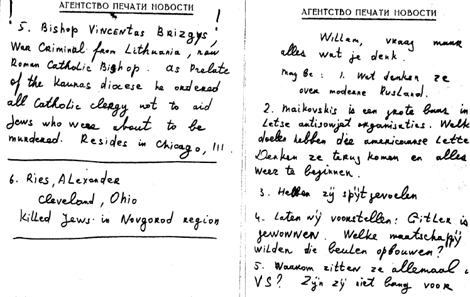 АГЕНТСТВО ПЕЧАТИ НОВОСТИ
5. Bishop Vincentas Brizgys!
War Criminal from Lithuania, now
Roman Catholic Bishop. As Prelate
of the Kaunas diocese he ordered
all Catholic clergy not to aid
Jews who were about to be
murdered. Resides in Chicago, Ill.
6. Ries, Alexander
Cleveland, Ohio
Killed Jews in Novgorod region
АГЕНТСТВО ПЕЧАТИ НОВОСТИ
Willem, vraag maar
alles wat je denk.
1. Wat denken ze
over moderne Rusland.
2. Maikovskis is een grote baas in
Letse antisowjet organisaties. Welke
doelen hebben die americaanse Lette
Denken ze terug komen en alles
weer te beginnen.
3. Hebben zij spijtgevoelen
4. Laten wij voorstellen: Gitler is
gewonnen. Welke maatschappij
wilden die beulen opbouwen?
5. Waarom zitten ze allemaal
VS? Zijn zij niet bang voor